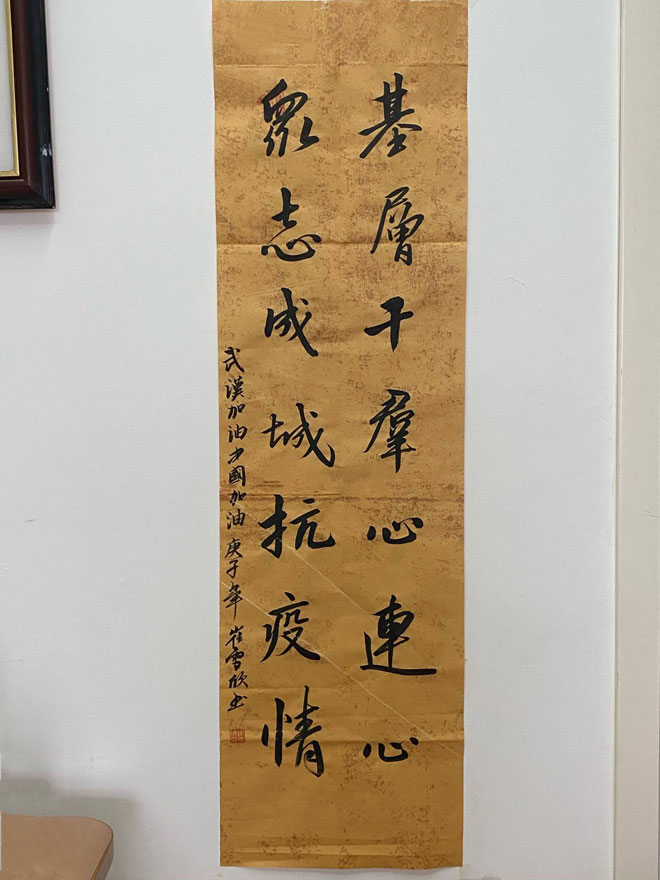 基層干羣心連心
衆志成城抗疫情
武漢加油中國加油庚子年崔雪欣书